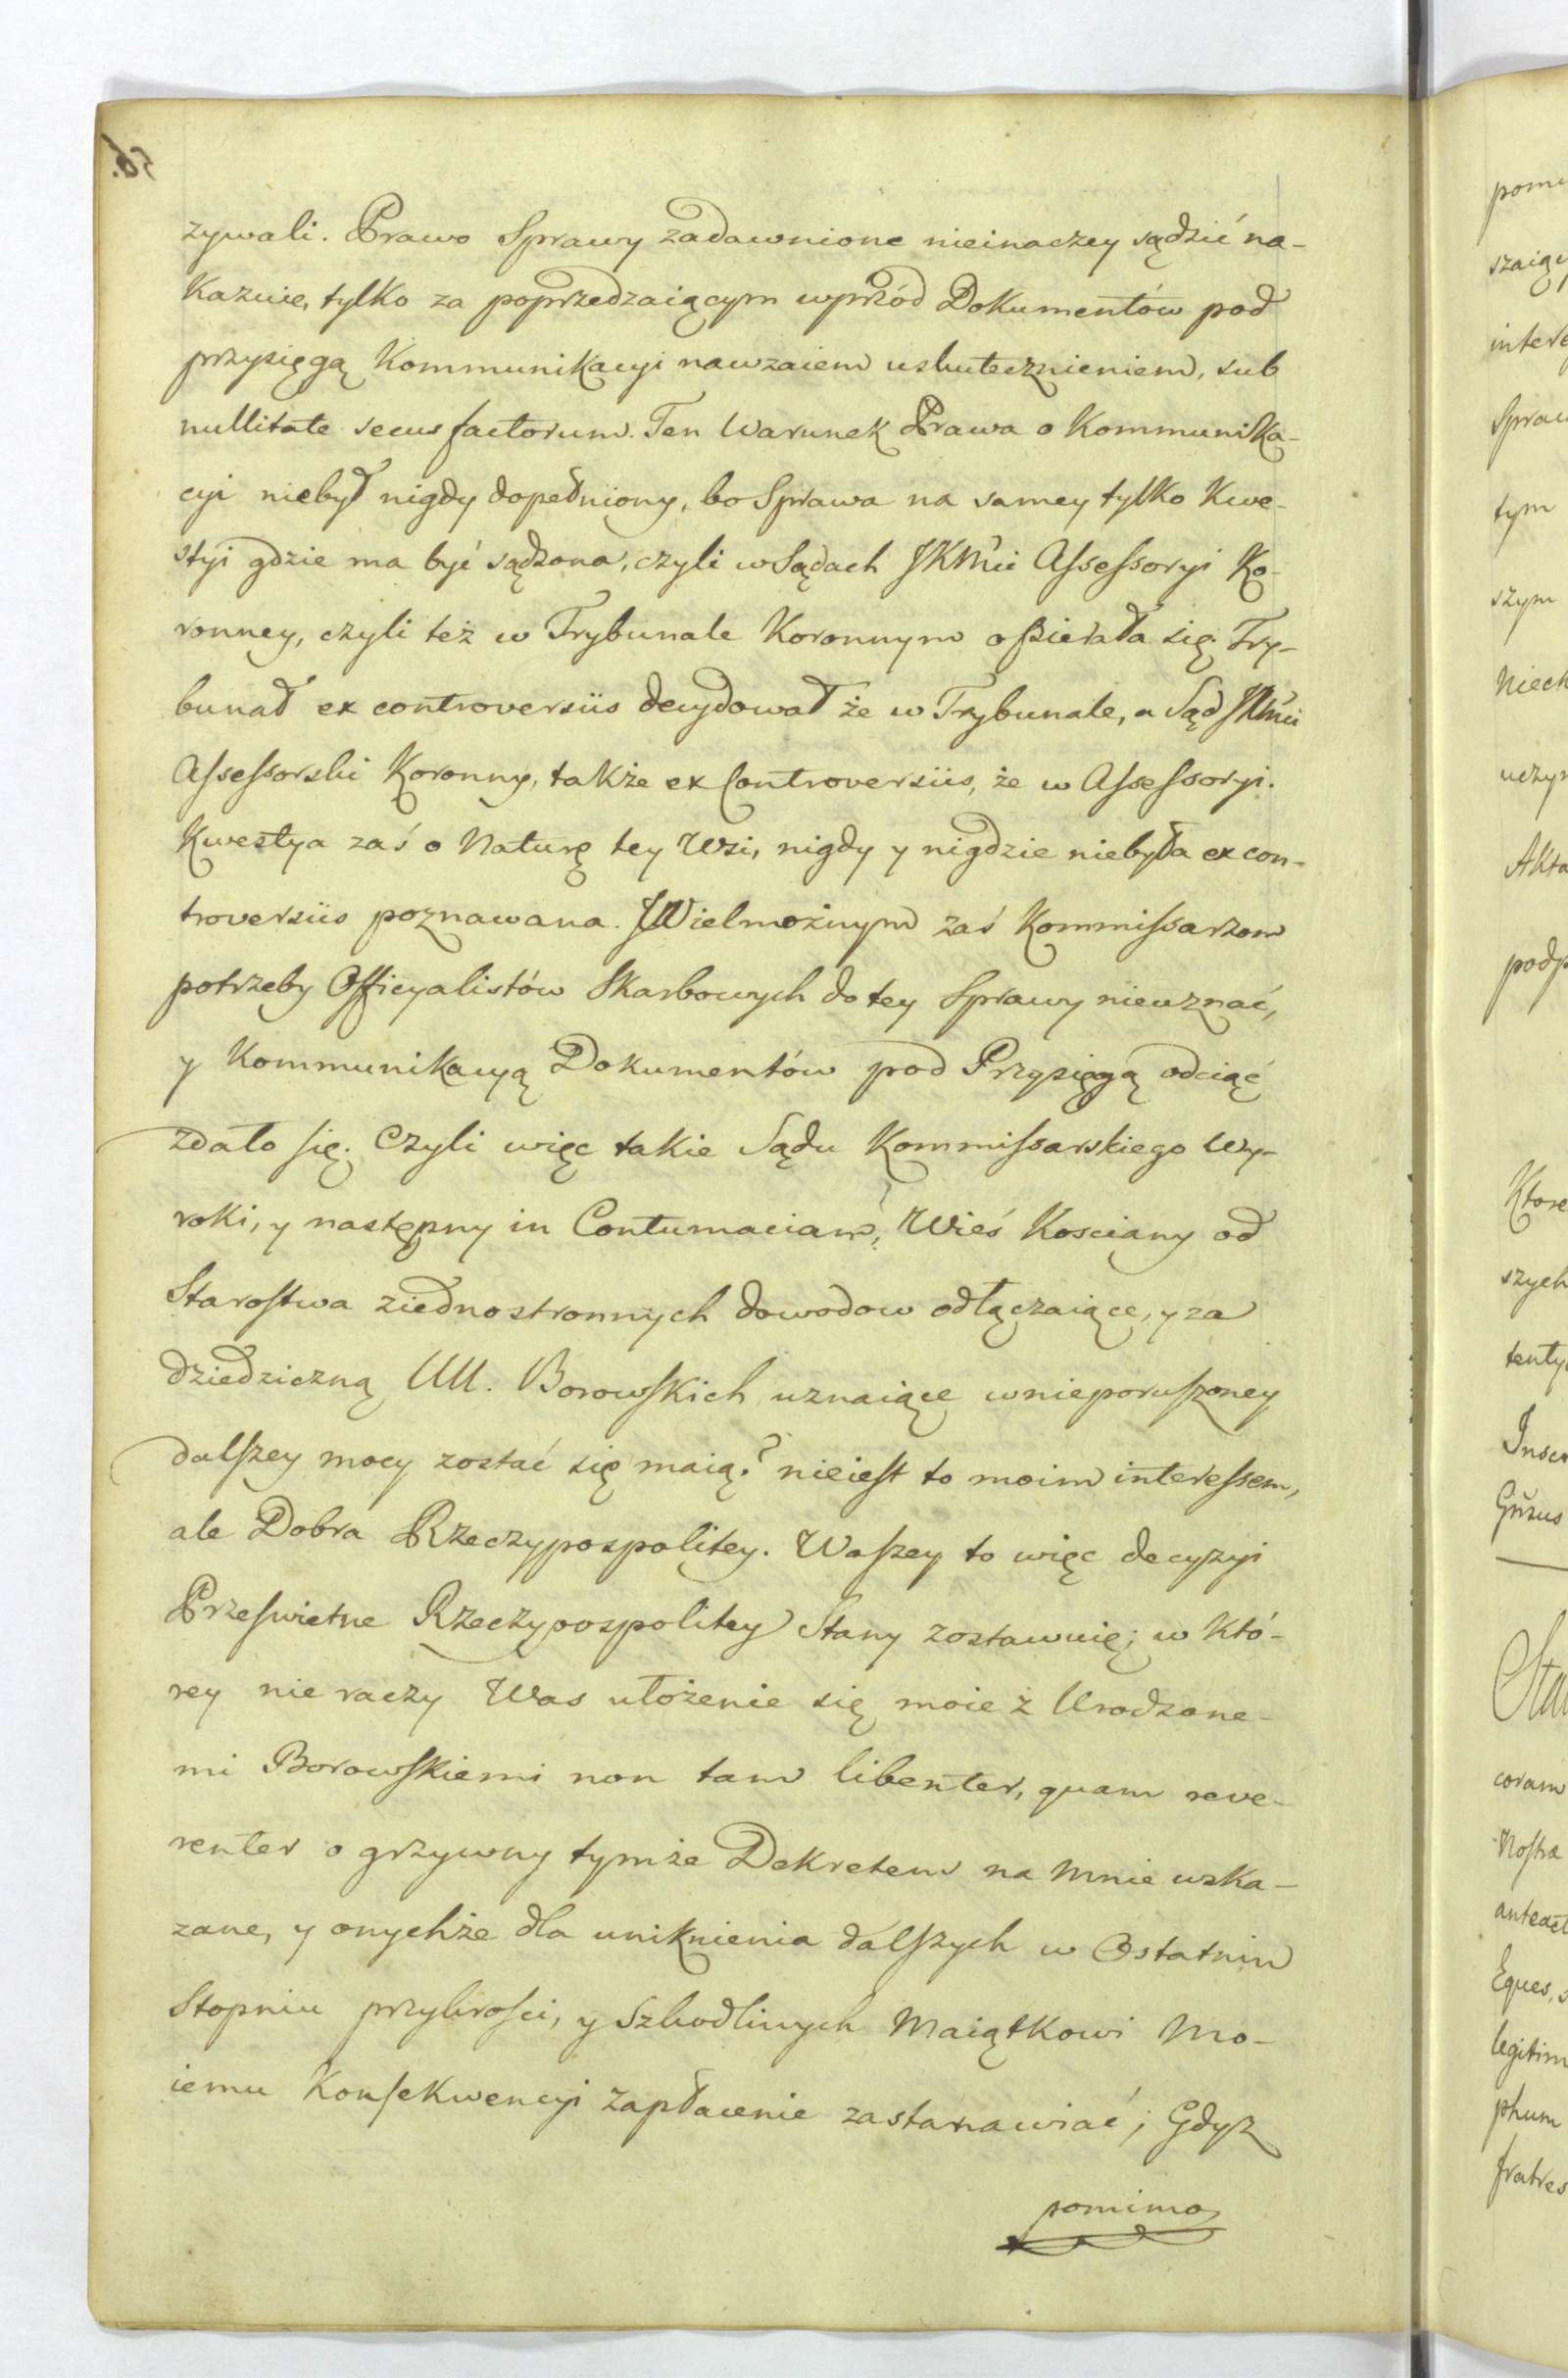 zywali. Prawo Sprawy zadawnione nieinaczey sądzić na-
kazuie, tylko za poprzedzaiącym wprzód Dokumentów pod
przysięgą Kommunikacyi nawzaiem uskutecznieniem, sub
nullitate secus factorum. Ten Warunek Prawa o Kommunika-
cyi niebył nigdy dopełniony, bo Sprawa na samey tylko Kwe-
styi gdzie ma być sądzona, czyli w Sądach JKMci Assessoryi Ko-
ronney, czyli też w Trybunale Koronnym opierała się. Try-
bunał ex controversiis decydował że w Trybunale, a Sąd JKMci
Assessorski Koronny, także ex Controversiis, że w Assessoryi.
Kwestya zaś o Naturę tey Wsi, nigdy y nigdzie niebyła ex con-
troversiis poznawana. JWielmożnym zaś Kommissarzom
potrzeby Officyalistów Skarbowych do tey Sprawy nieuznać,
y Kommunikacyą Dokumentów pod Przysięgą odciąć
zdało się. Czyli więc takie Sądu Kommissarskiego Wy-
roki, y następny in Contumaciam, Wieś Kosciany od
Starostwa ziednostronnych dowodow odłączaiące, y za
dziedziczną UU. Borowskich uznaiące wnieporuszoney
dalszey mocy zostać się maią? nieiest to moim interessem,
ale Dobra Rzeczypospolitey. Waszey to więc decyzyi
Przeswietne Rzeczypospolitey Stany zostawuię; w któ-
rey nie raczy Was ułożenie się moie z Urodzone-
mi Borowskiemi non tam libenter, quam reve-
renter o grzywny tymże Dekretem na Mnie wska-
zane, y onychże dla uniknienia dalszych w Ostatnim
Stopniu przykrości, y Szkodliwych Maiątkowi Mo-
iemu Konsekwencyi zapłacenie zastanawiać; Gdyż
pomimo
pomi
Spraw
tym
szym
Niech
Akta
podp
szych
coram
Nostra
anteact
Eques,
legitim
phum
fratres